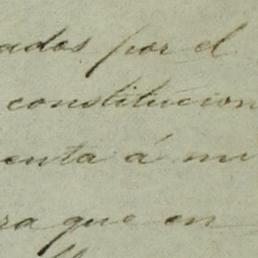 ados por el
constitucion
enta á mi
ra que en